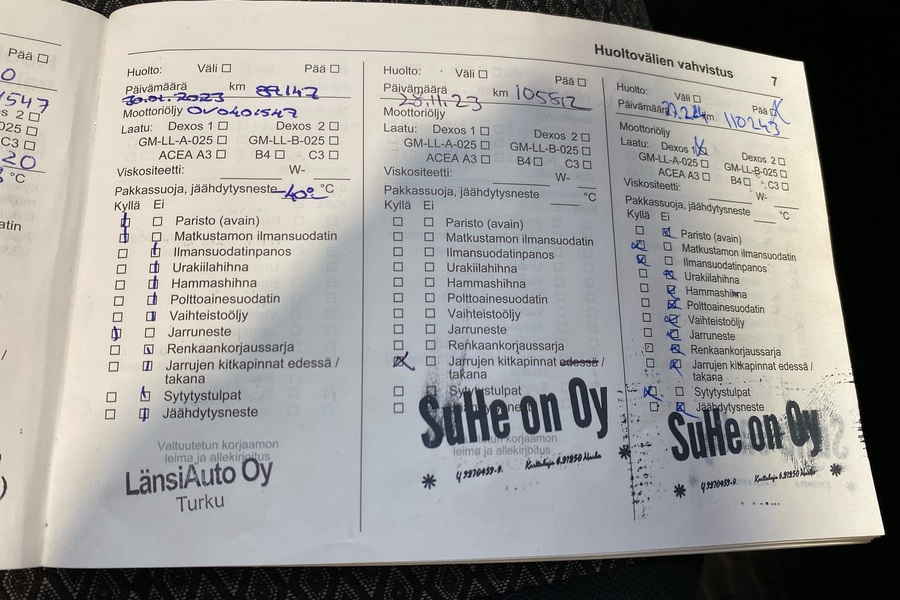 Pää ☐
Huoltovälien vahvistus
7
Huolto: Väli ☐ Pää ☐
Päivämäärä 30.01.2023 km 82142
Moottoriöljy OV040547
Laatu: Dexos 1 ☐ Dexos 2 ☐
GM-LL-A-025 ☐ GM-LL-B-025 ☐
ACEA A3 ☐ B4 ☐ C3 ☐
Viskositeetti: W-
Pakkassuoja, jäähdytysneste -40° °C
Kyllä Ei
Paristo (avain)
Matkustamon ilmansuodatin
Ilmansuodatinpanos
Urakiilahihna
Hammashihna
Polttoainesuodatin
Vaihteistoöljy
Jarruneste
Renkaankorjaussarja
Jarrujen kitkapinnat edessä /
takana
Sytytystulpat
Jäähdytysneste
Valtuutetun korjaamon
leima ja allekirjoitus
LänsiAuto Oy
Turku
Huolto: Väli ☐ Pää ☐
Päivämäärä 28.11.23 km 105512
Moottoriöljy
Laatu: Dexos 1 ☐ Dexos 2 ☐
GM-LL-A-025 ☐ GM-LL-B-025 ☐
ACEA A3 ☐ B4 ☐ C3 ☐
Viskositeetti: W-
Pakkassuoja, jäähdytysneste °C
Kyllä Ei
Paristo (avain)
Matkustamon ilmansuodatin
Ilmansuodatinpanos
Urakiilahihna
Hammashihna
Polttoainesuodatin
Vaihteistoöljy
Jarruneste
Renkaankorjaussarja
Jarrujen kitkapinnat edessä /
takana
Sytytystulpat
SuHe on Oy
korjaamon
leima ja allekirjoitus
Huolto: Väli ☐ Pää ☒
Päivämäärä km 110243
Moottoriöljy
Laatu: Dexos 1 ☒ Dexos 2 ☐
GM-LL-A-025 ☐ GM-LL-B-025 ☐
ACEA A3 ☐ B4 ☐ C3 ☐
Viskositeetti: W-
Pakkassuoja, jäähdytysneste °C
Kyllä Ei
Paristo (avain)
Matkustamon ilmansuodatin
Ilmansuodatinpanos
Urakiilahihna
Hammashihna
Polttoainesuodatin
Vaihteistoöljy
Jarruneste
Renkaankorjaussarja
Jarrujen kitkapinnat edessä /
takana
Sytytystulpat
Jäähdytysneste
SuHe on Oy